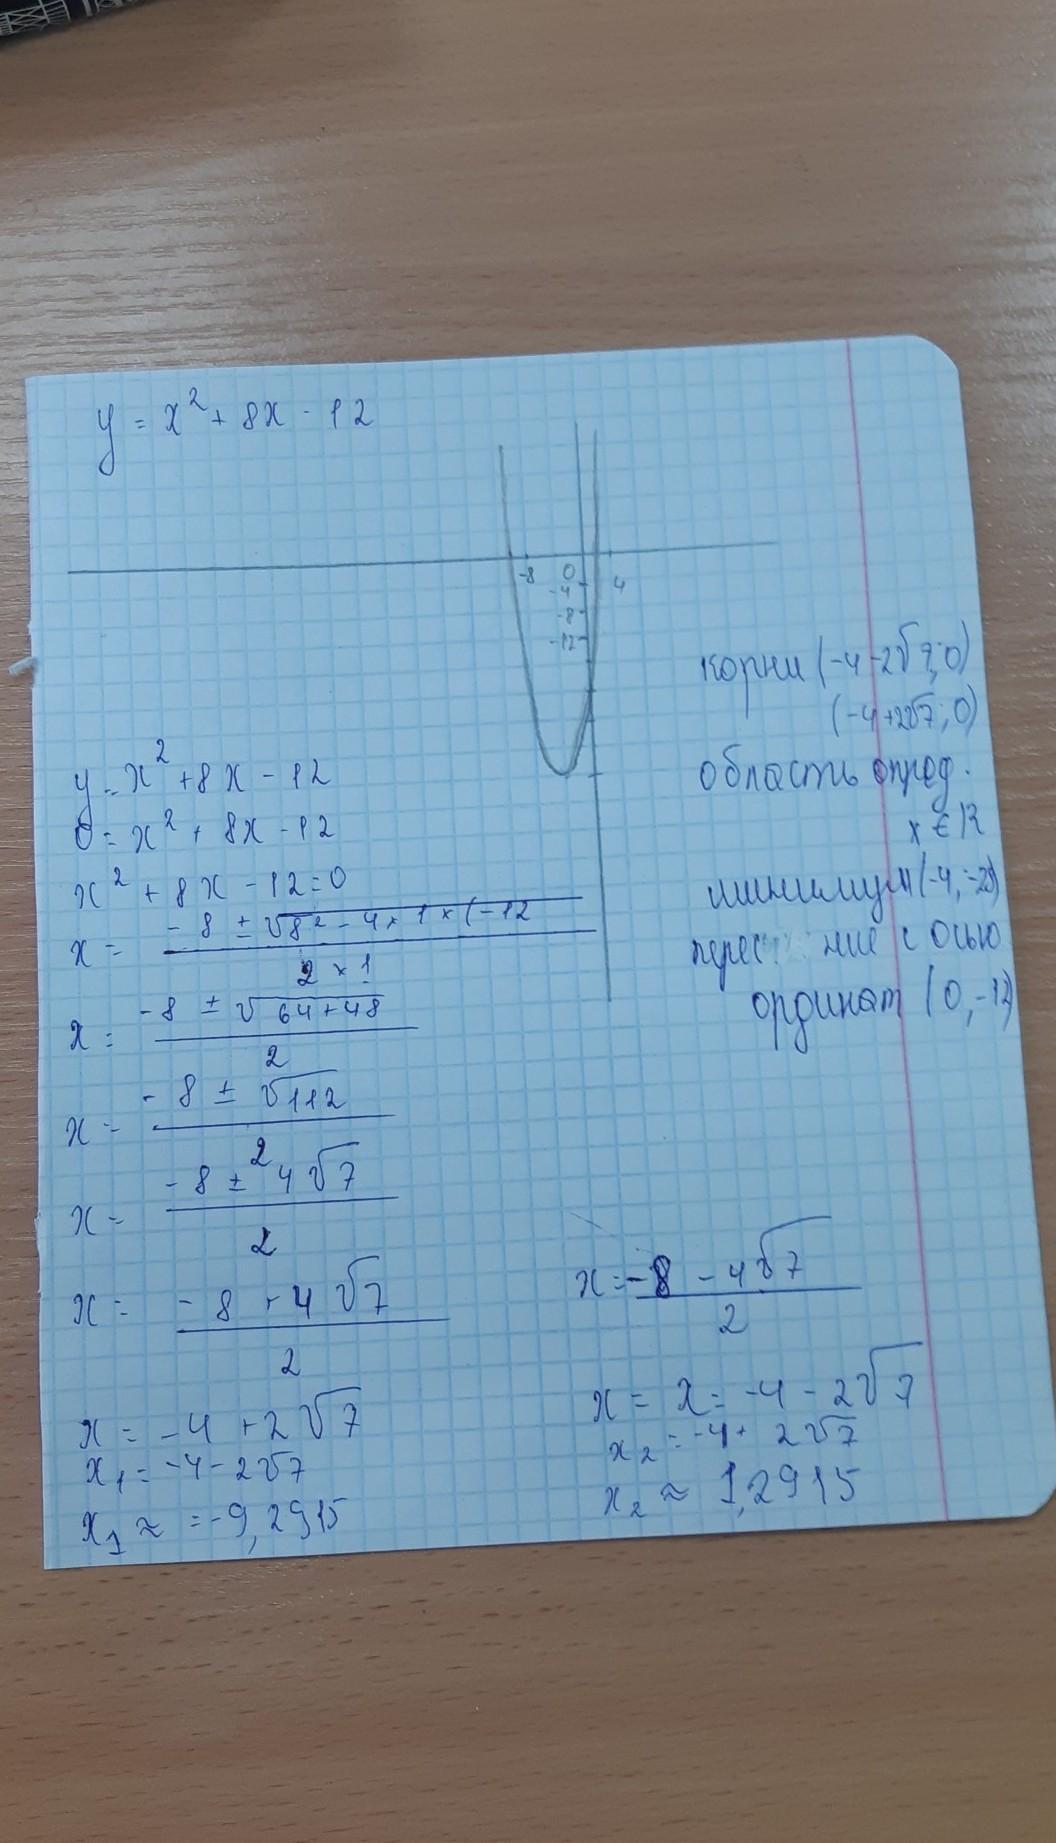 y = x² + 8x - 12
-8 0 4
-4
-8
-12
корни (-4-2√7; 0)
(-4+2√7; 0)
область опред.
x ∈ R
минимум (-4, -28)
с осью
ординат (0, -12)
y = x² + 8x - 12
0 = x² + 8x - 12
x² + 8x - 12 = 0
x = (-8 ± √(8² - 4 × 1 × (-12)) / (2 × 1)
x = (-8 ± √(64 + 48)) / 2
x = (-8 ± √112) / 2
x = (-8 ± 4√7) / 2
x = (-8 + 4√7) / 2
x = -4 + 2√7
x₁ = -4 - 2√7
x₁ ≈ = -9,2915
x = (-8 - 4√7) / 2
x = x = -4 - 2√7
x₂ = -4 + 2√7
x₂ ≈ 1,2915